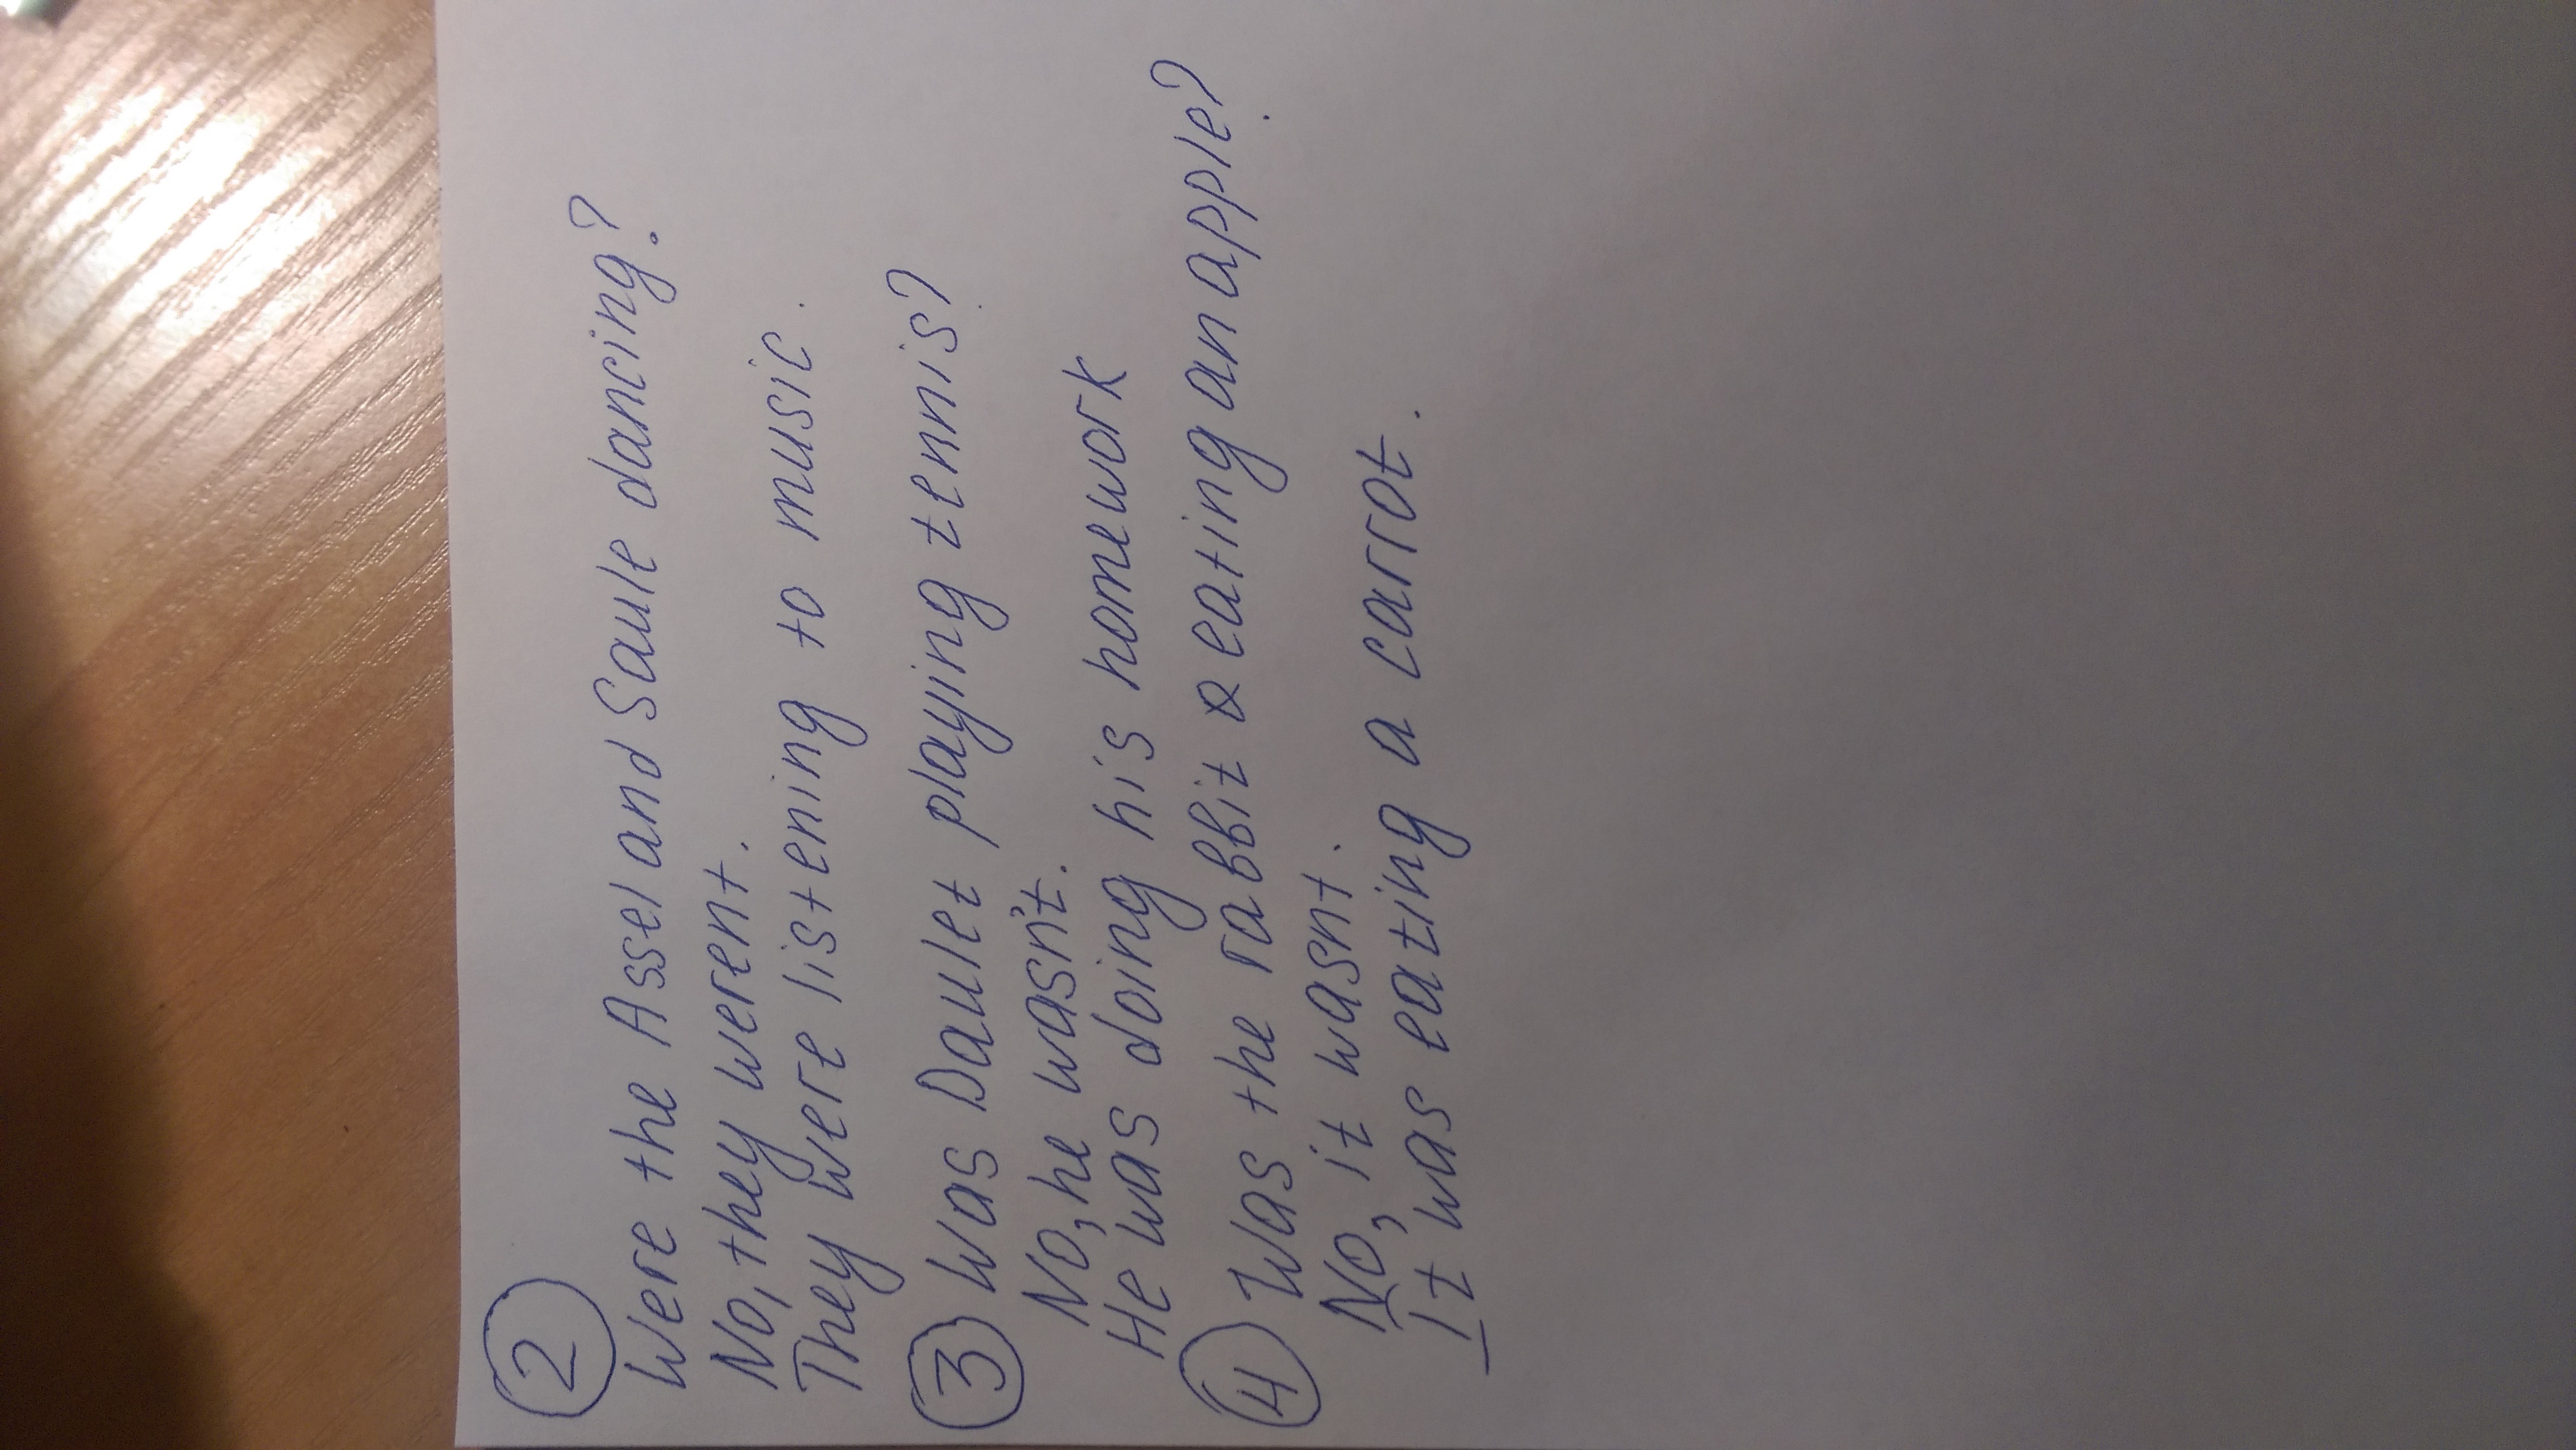 2
Were the Assel and Saule dancing?
No, they werent.
They were listening to music.
3 Was Daulet playing tennis?
No, he wasn't.
He was doing his homework
4 Was the rabbit eating an apple?
No, it wasnt.
It was eating a carrot.